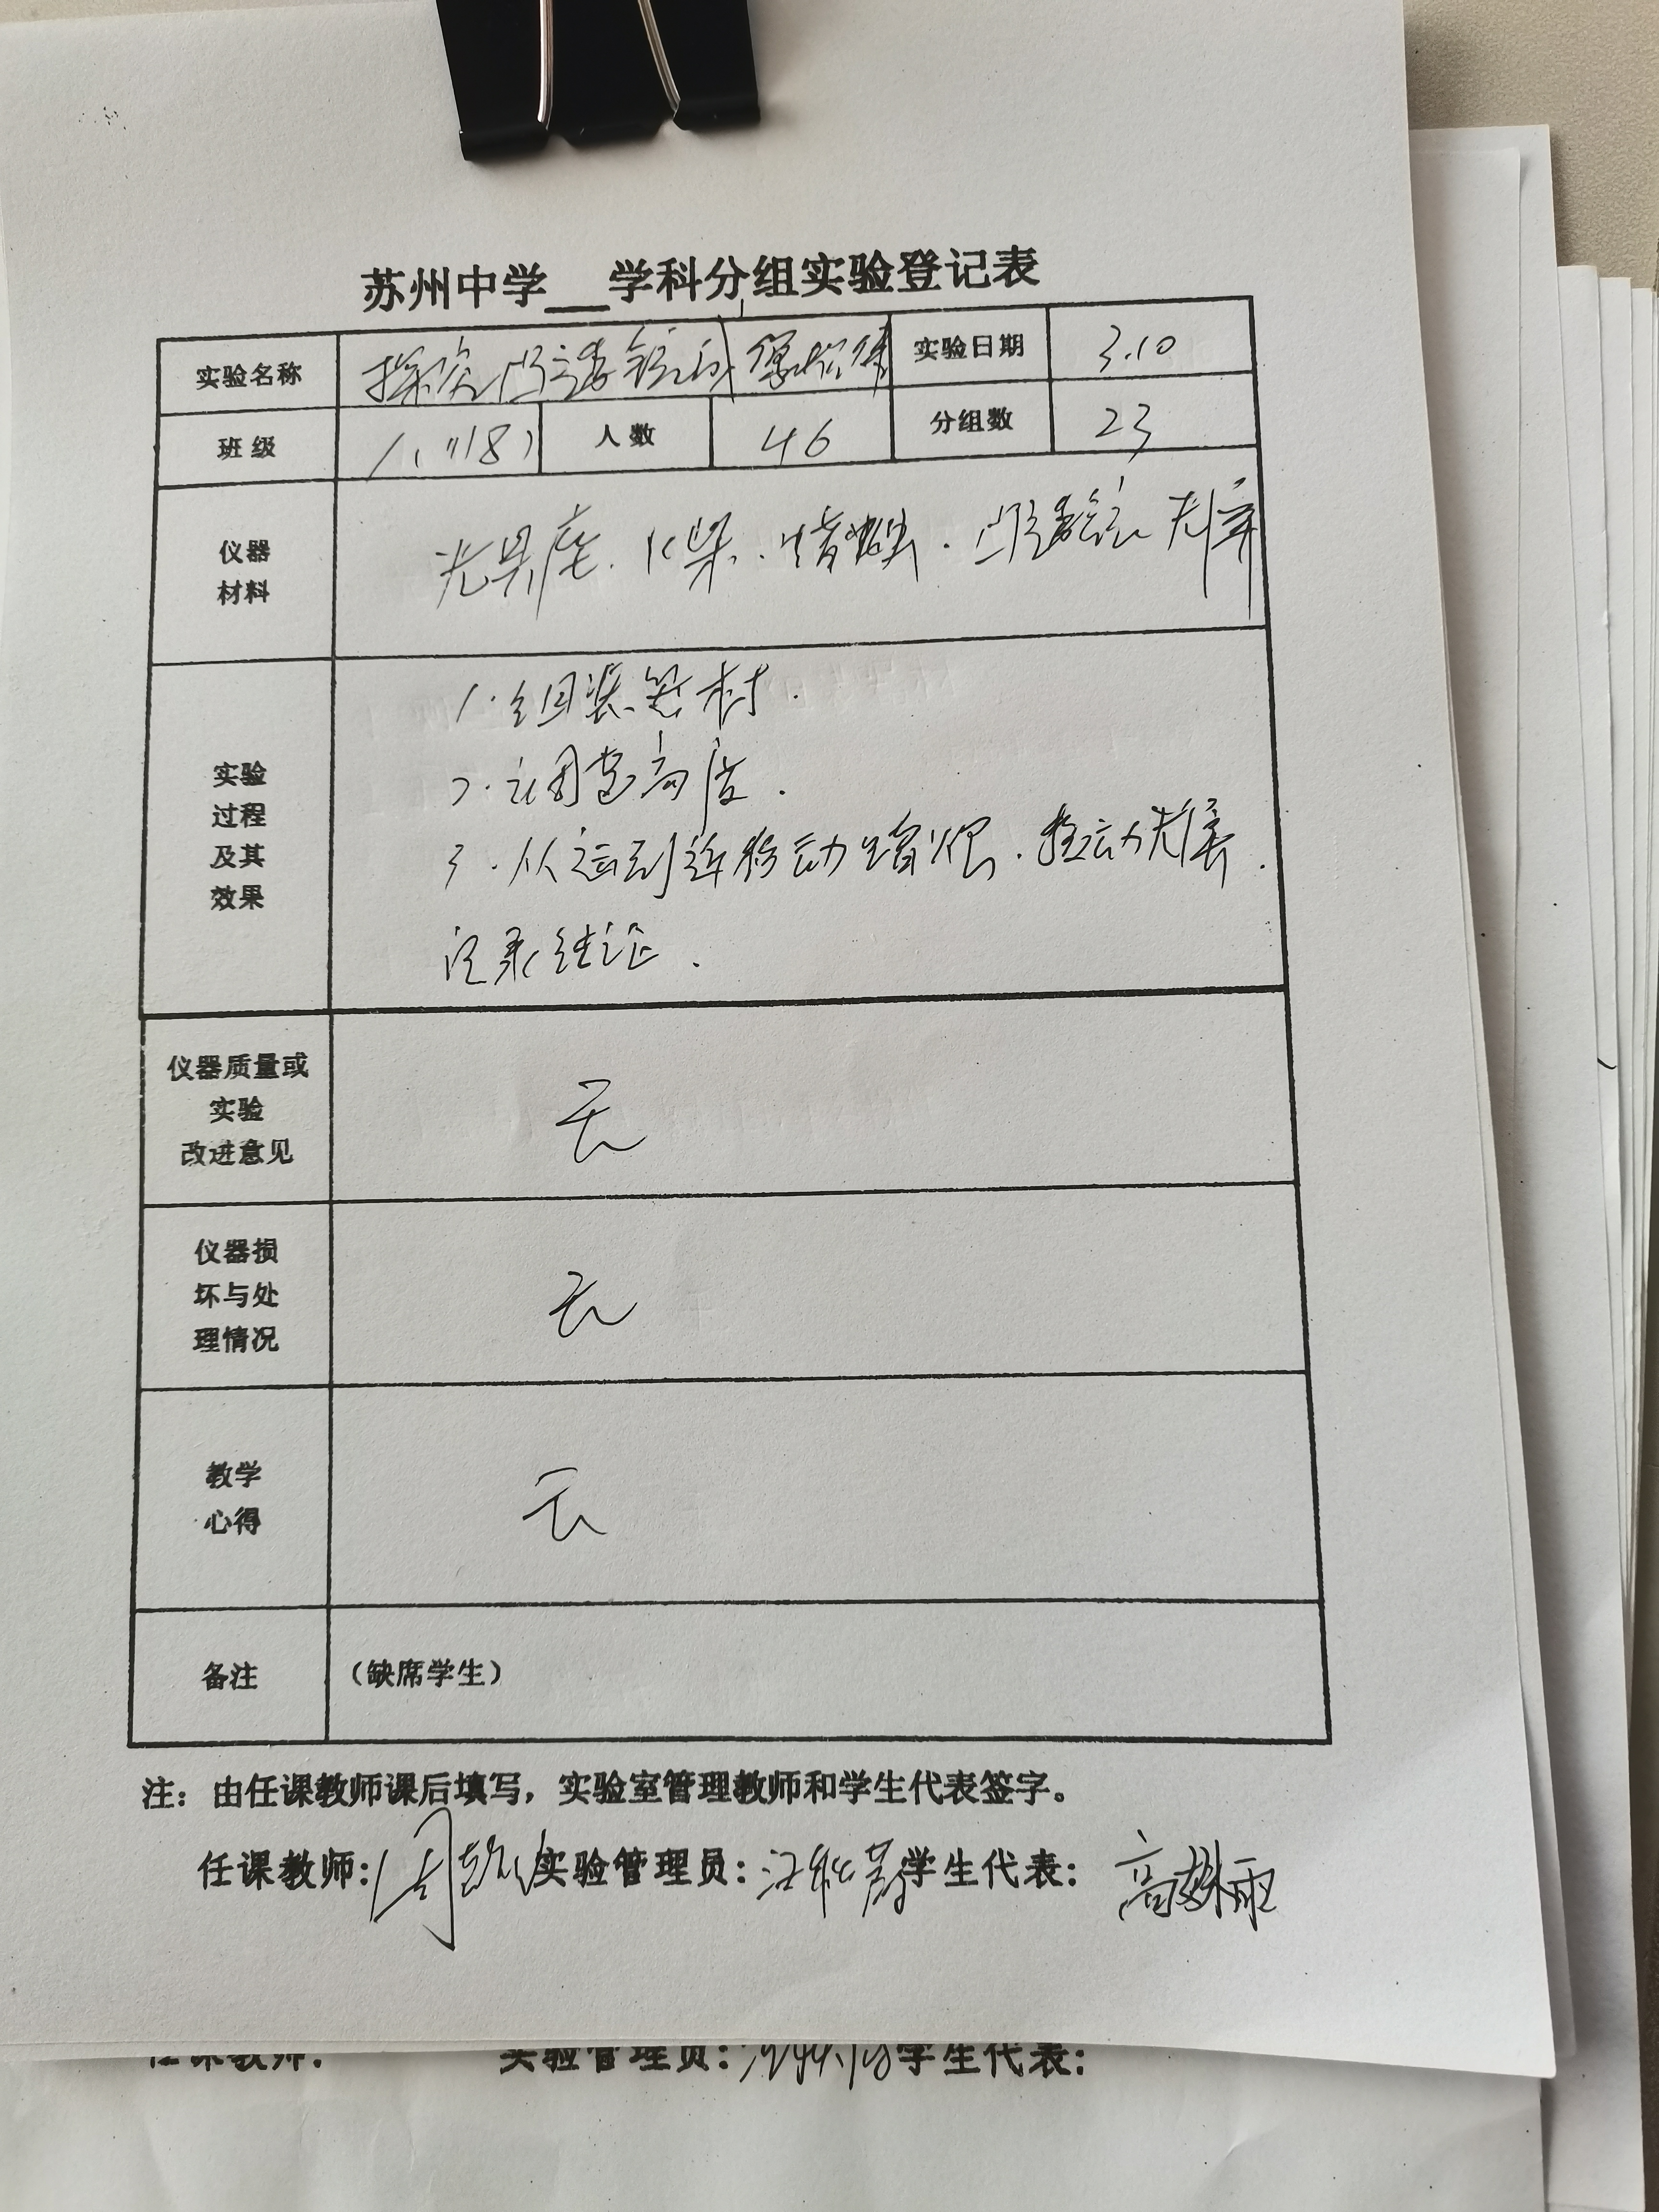 苏州中学__学科分组实验登记表
实验名称 探究凸透镜的成像规律 实验日期 3.10
班级 八(18) 人数 46 分组数 23
仪器
材料
光具座、火柴、蜡烛、凸透镜、光屏
实验
过程
及其
效果
1.组装器材.
2.调整高度.
3.从远到近移动蜡烛.移动光屏.
记录结论.
仪器质量或
实验
改进意见
无
仪器损
坏与处
理情况
无
教学
心得
无
备注 (缺席学生)
注:由任课教师课后填写,实验室管理教师和学生代表签字。
任课教师: 实验管理员: 学生代表:
任课教师: 实验管理员: 学生代表: